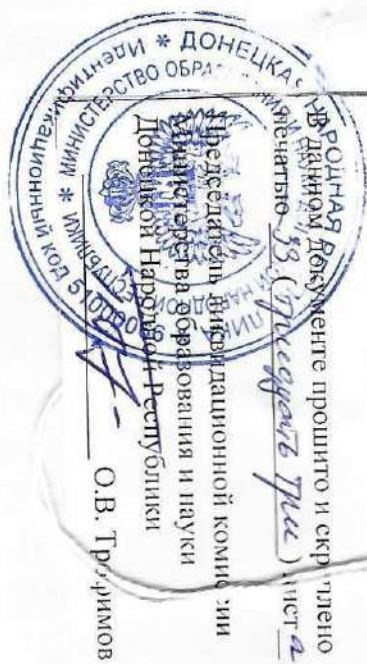 В данном документе прошито и скреплено
печатью 33 (Тридцать три) листа
Председатель ликвидационной комиссии
Министерства образования и науки
Донецкой Народной Республики
О.В. Трофимов
ДОНЕЦКАЯ НАРОДНАЯ РЕСПУБЛИКА
МИНИСТЕРСТВО ОБРАЗОВАНИЯ И НАУКИ ДОНЕЦКОЙ НАРОДНОЙ РЕСПУБЛИКИ
Идентификационный код